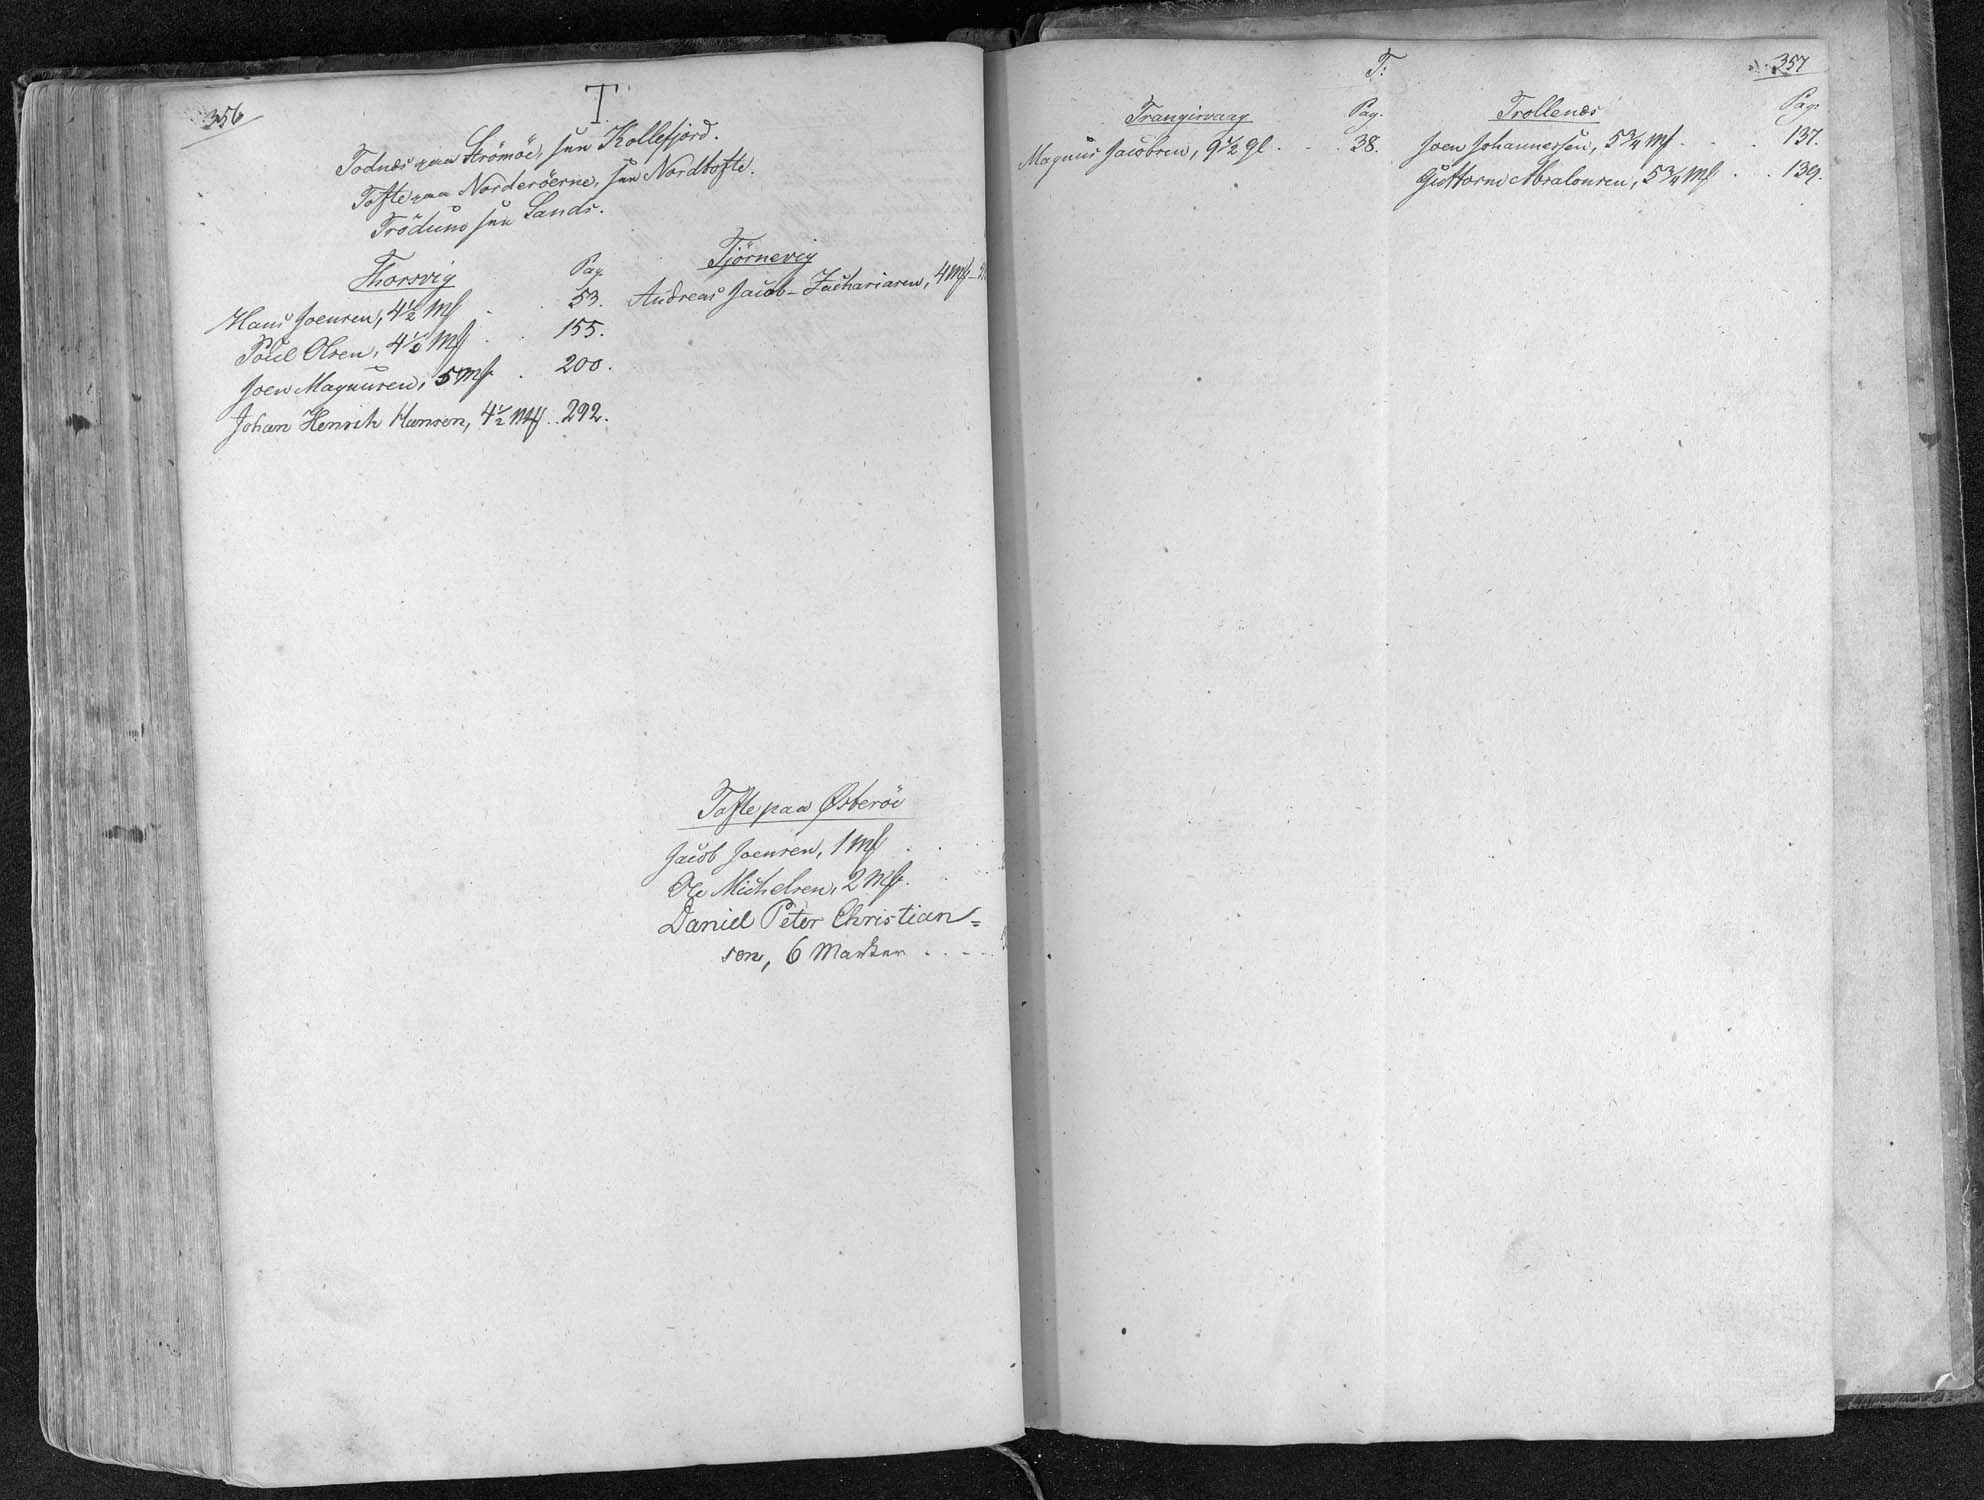 356
T
Todnæs paa Strömöe, see Kollefjord.
Tofte paa Norderöerne, see Nordtofte.
Trödum see Sands.
Thorsvig
Pag.
Hans Joensen, 4 1/2 Mk . 53.
Poul Olsen, 4 1/2 Mk . . 155.
Joen Magnusen, 5 Mk . 200.
Johan Henrik Hansen, 4 1/2 Mk . . 292.
Tjörnevig
Andreas Jacob Zachariasen, 4 Mk
Tofte paa Østeröe
Jacob Joensen, 1 Mk . .
Ole Michelsen, 2 Mk .
Daniel Peter Christian=
sen, 6 Marker . . . .
T.
357
Trangisvaag
Pag.
Magnus Jacobsen, 9 1/2 gl . . . 38.
Trollenæs
Pag.
Joen Johannessen, 5 3/4 Mk . . . 137.
Guttorm Absalonsen, 5 3/4 Mk . . 139.